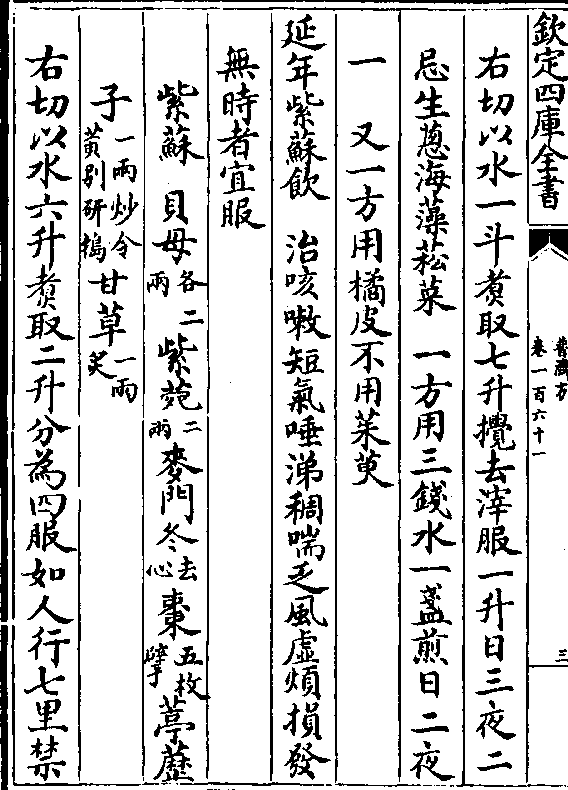 欽定四庫全書
普濟方
卷一百六十一
三
右切以水一斗煑取七升攪去滓服一升日三夜二
忌生葱海藻菘菜　一方用三錢水一盞煎日二夜
一　又一方用橘皮不用茱萸
延年紫蘇飲　治咳嗽短氣唾涕稠喘乏風虛煩損發
無時者宜服
紫蘇　貝母各二兩　紫菀二兩　麥門冬去心　棗五枚擘　葶藶
子一兩炒令黃别研搗　甘草一兩炙
右切以水六升煑取二升分為四服如人行七里禁